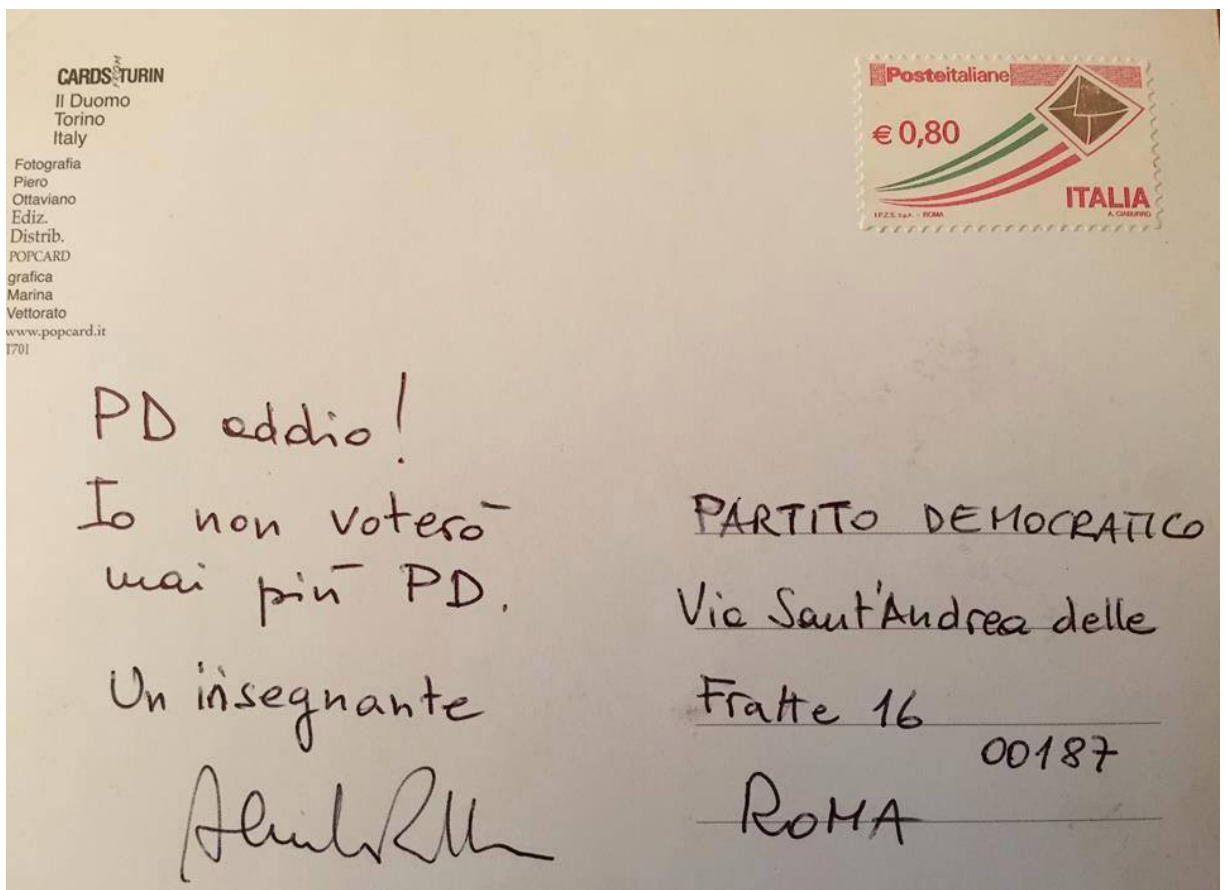 CARDS FROM TURIN
Il Duomo
Torino
Italy
Fotografia
Piero
Ottaviano
Ediz.
Distrib.
POPCARD
grafica
Marina
Vettorato
www.popcard.it
T701
Posteitaliane
€ 0,80
ITALIA
I.P.Z.S. S.p.A. - ROMA
A. CIABURRO
PD addio!
Io non voterò
mai più PD.
Un insegnante
PARTITO DEMOCRATICO
Via Sant'Andrea delle
Fratte 16
00187
ROMA